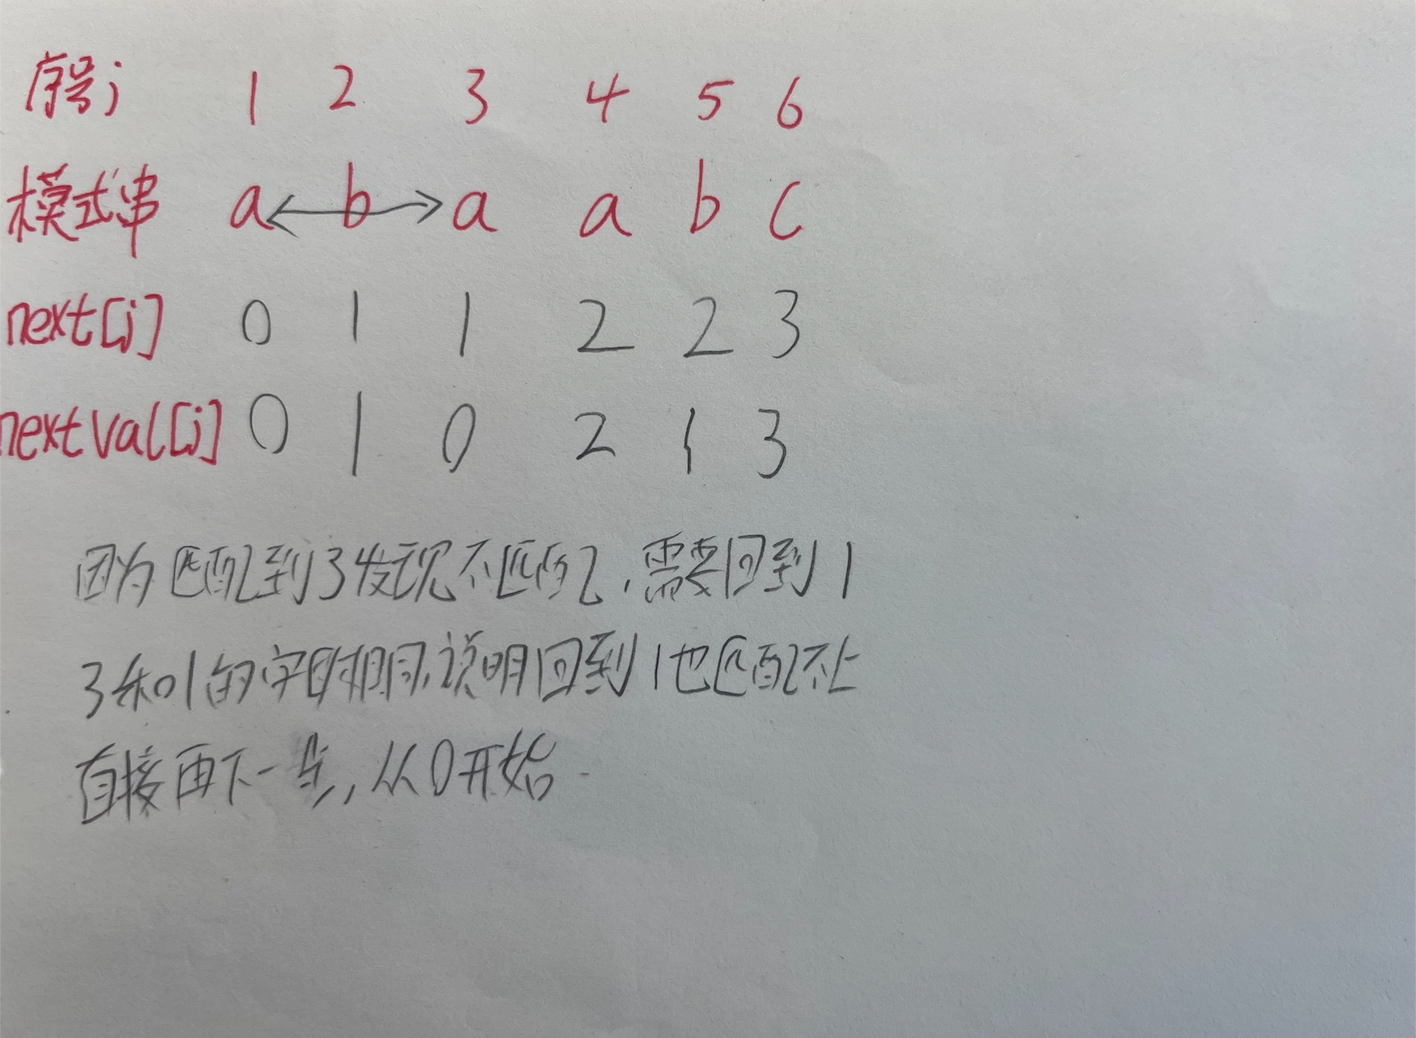 序号j 1 2 3 4 5 6
模式串 a b a a b c
next[j] 0 1 1 2 2 3
nextval[j] 0 1 0 2 1 3
因为匹配到3发现不匹配,需要回到1
3和1的字母相同,说明回到1也匹配不上
直接再下一步,从0开始.